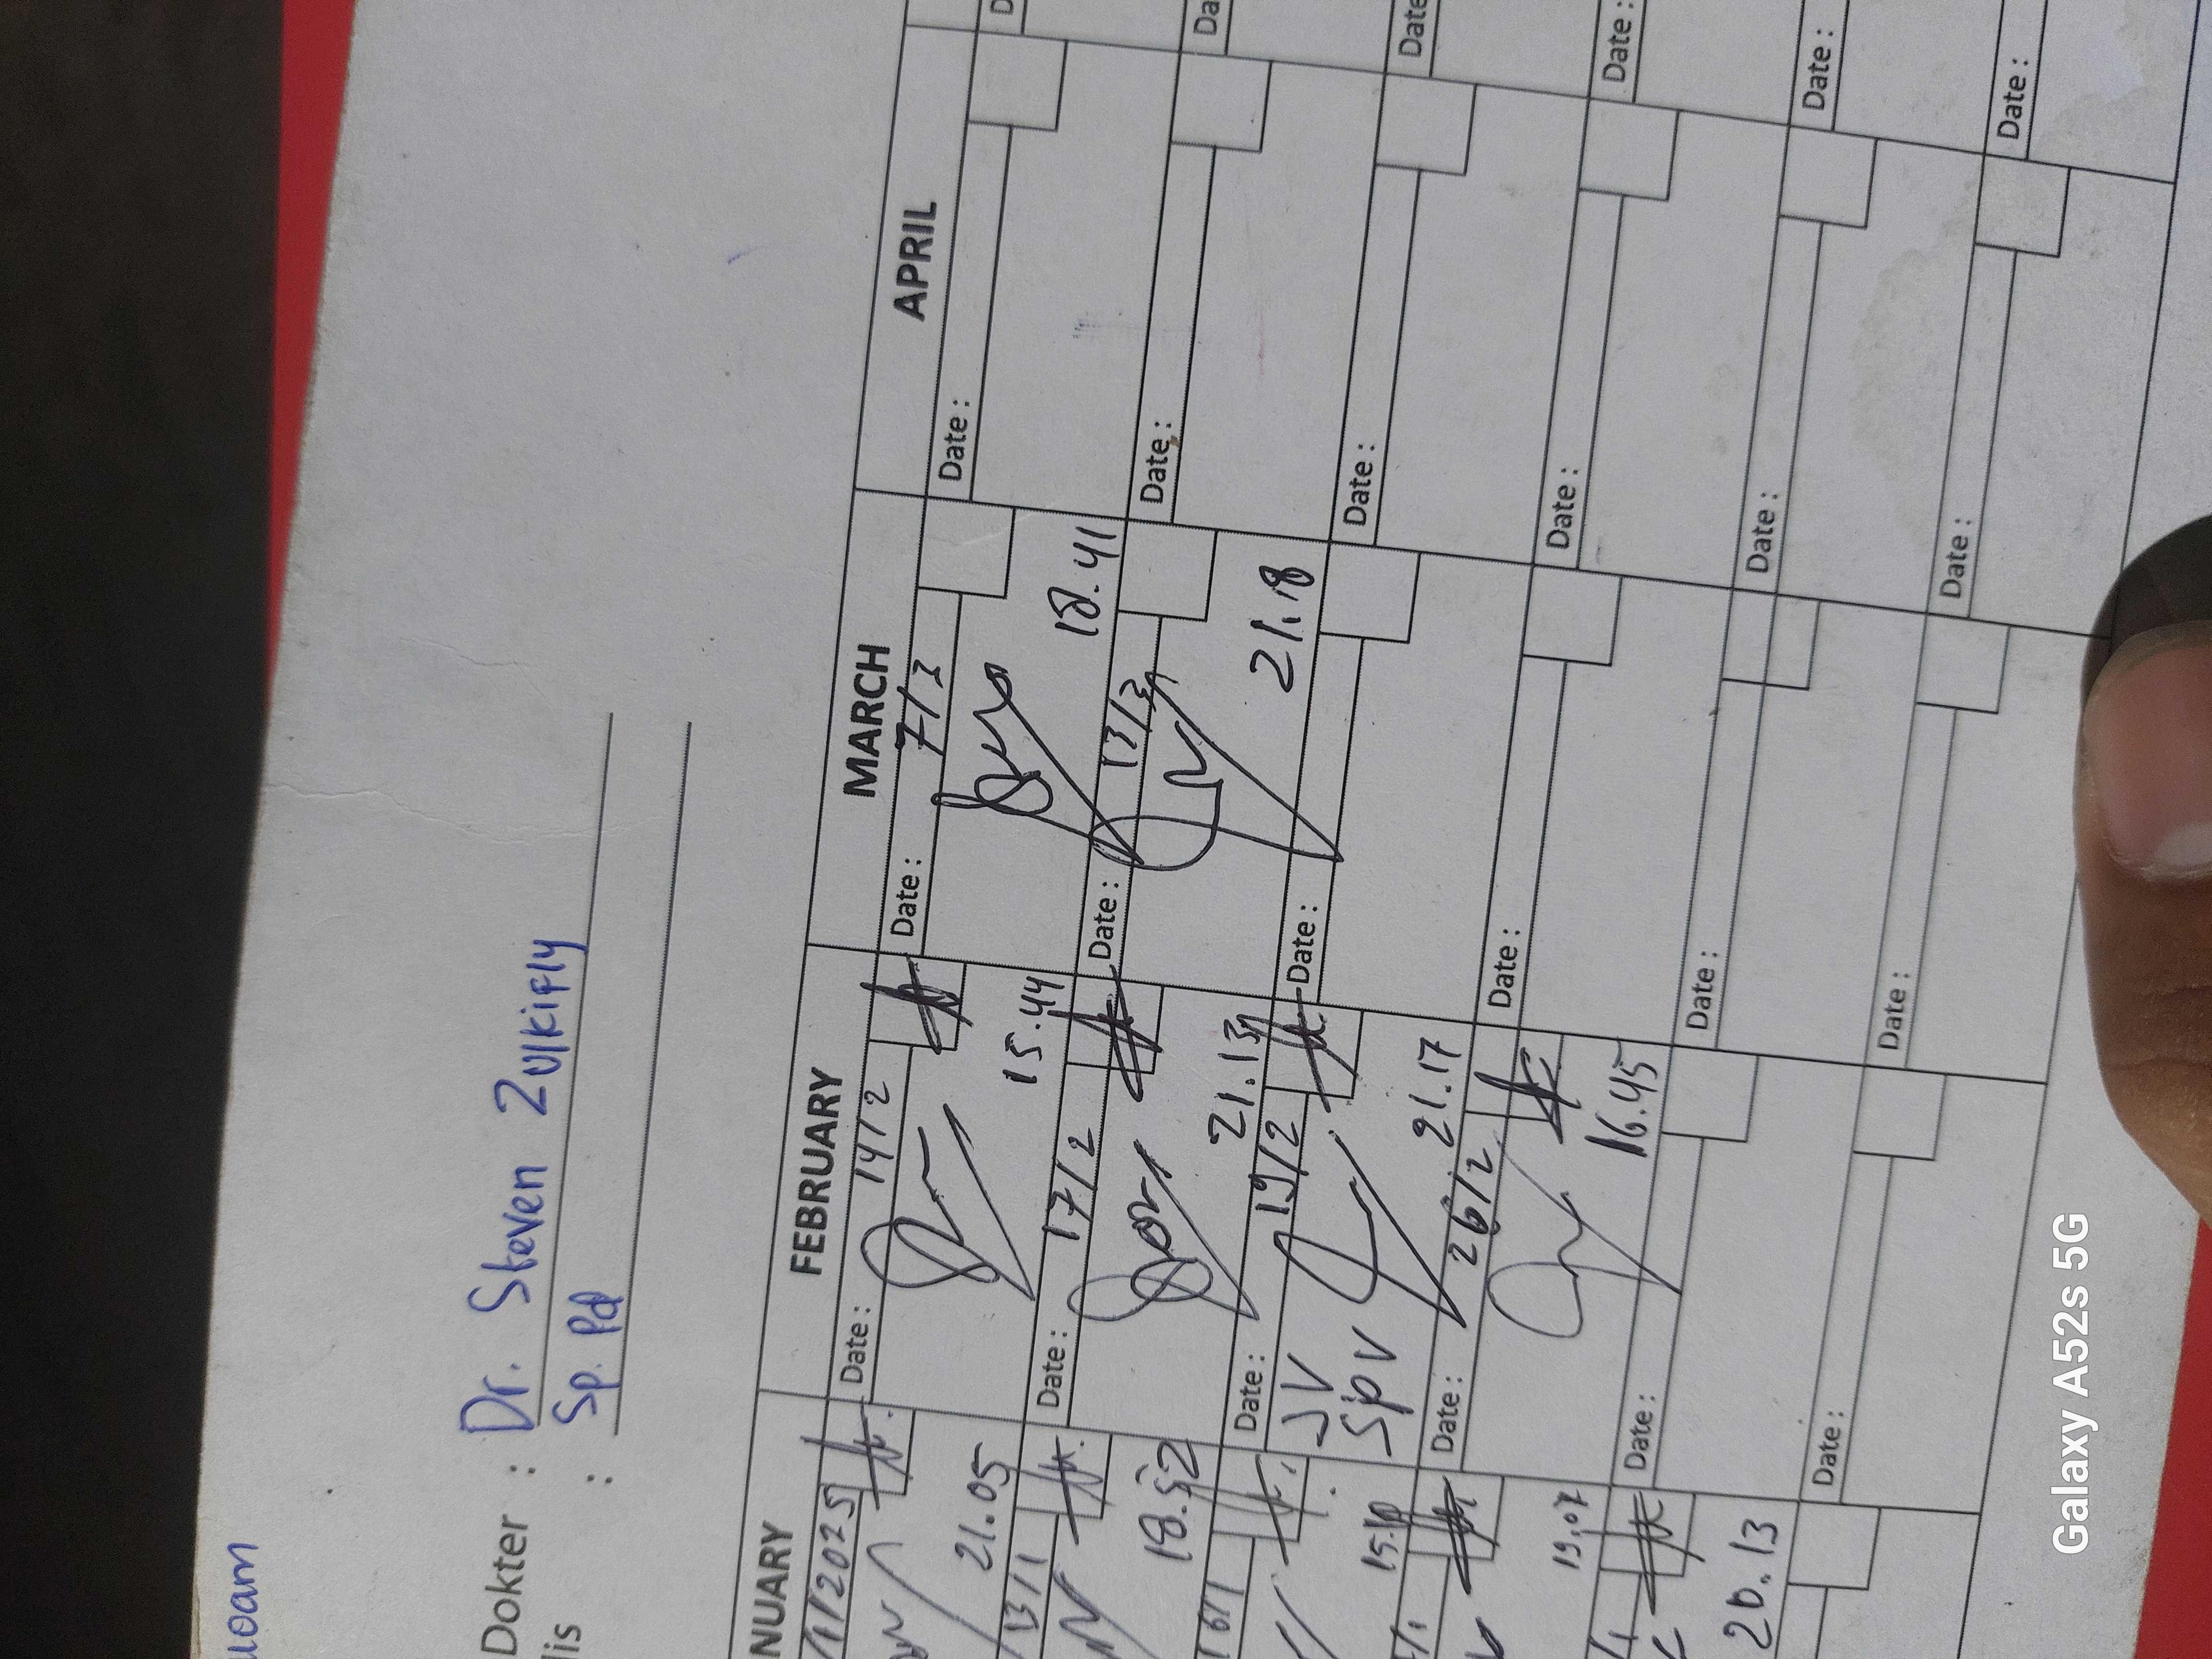 Dokter : Dr. Steven Zulkifly
lis : Sp. Pd
NUARY FEBRUARY MARCH APRIL
/1/2025 Date : 14/2 Date : 7/3 Date :
21.05 15.44 18.41
13/1 Date : 17/2 Date : 13/3 Date : Date :
18.52 21.13 21.18
16/1 Date : 19/2 Date : Date : Date :
JV
Spv
21.17
/1 Date : 26/2 Date : Date : Date :
19.07 16.45
Date : Date : Date : Date :
20.13
Date : Date : Date : Date :
Galaxy A52s 5G